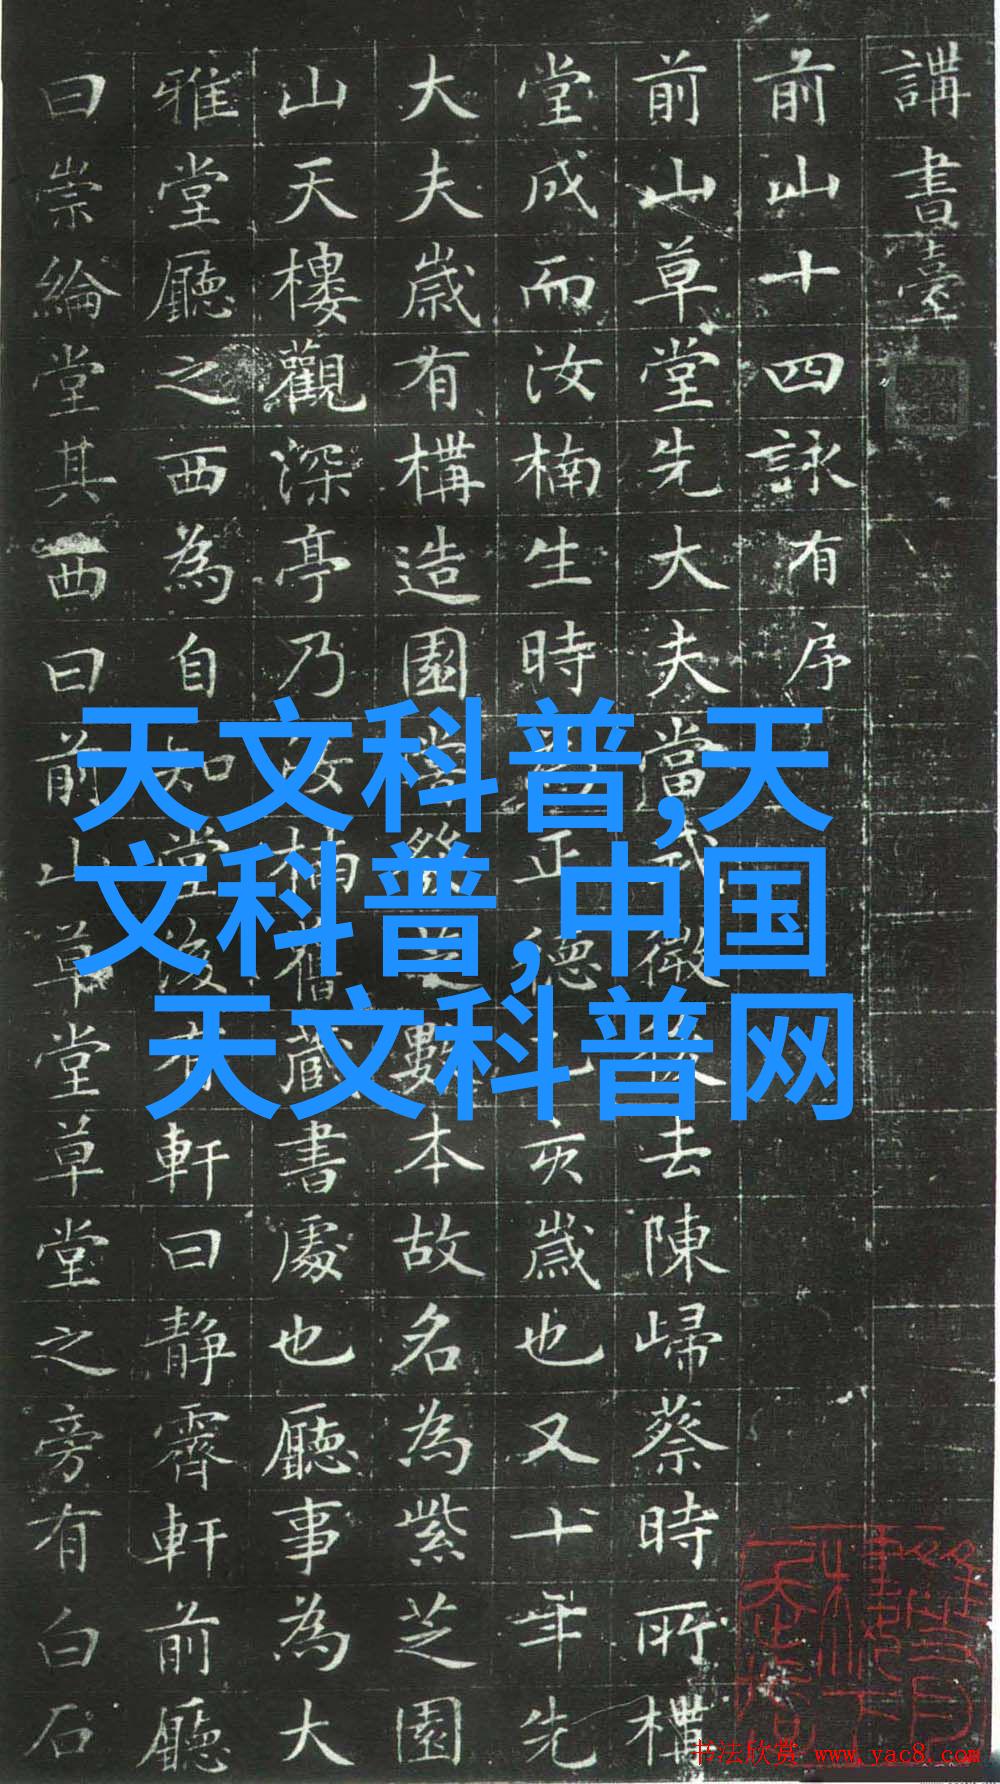 講書臺
前山十四詠有序
前山草堂先大夫當徵後去陳歸蔡時所
堂成而汝楠生時為正德乙亥歲也又十年先
大夫歲有構造園芝數本故名為紫芝園
山天樓觀深亭乃汝楠舊藏書處也廳事為大
雅堂廳之西為自知堂後有軒曰靜霽軒前廳
曰崇綸堂其西曰前山草堂草堂之旁有白石
天文科普,天
文科普,中国
天文科普网
书法欣赏 www.yac8.com